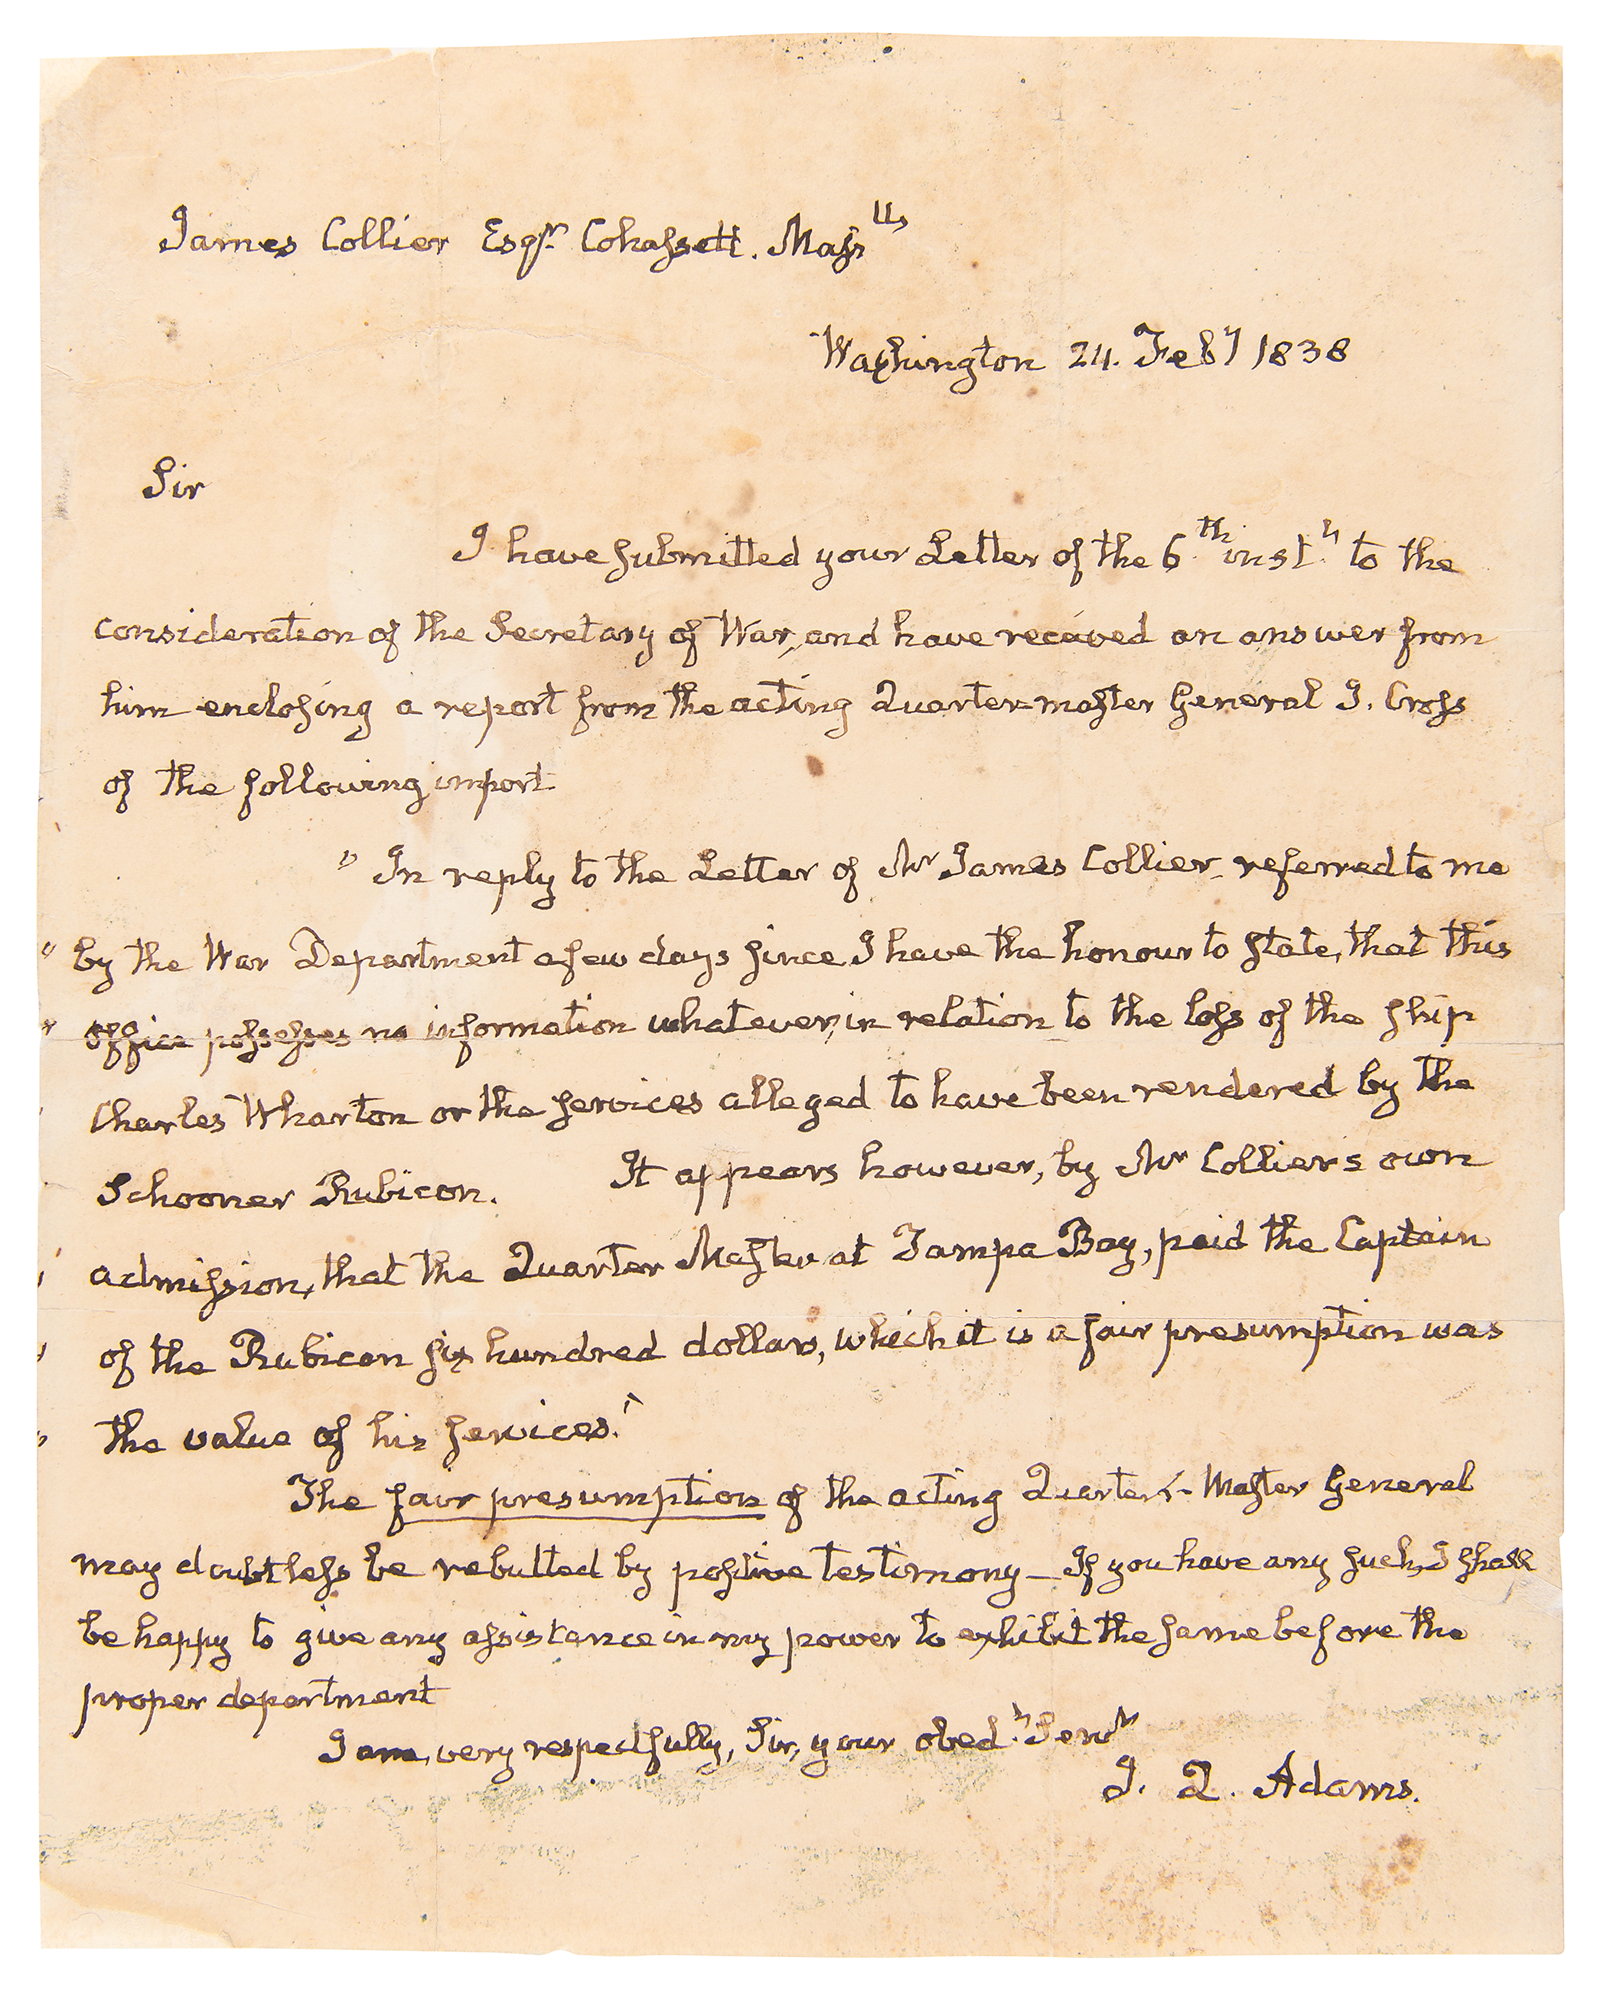 James Collier Esqr. Cohassett. Masstts
Washington 24. Feby 1838
Sir
I have submitted your Letter of the 6th inst. to the
consideration of the Secretary of War, and have received an answer from
him enclosing a report from the acting Quarter-master General T. Cross
of the following import
" In reply to the Letter of Mr James Collier, referred to me
" by the War Department a few days since I have the honour to state, that this
" office possesses no information whatever, in relation to the loss of the ship
" Charles Wharton or the services alleged to have been rendered by the
Schooner Rubicon. It appears however, by Mr Collier's own
" admission, that the Quarter Master at Tampa Bay, paid the Captain
" of the Rubicon six hundred dollars, which it is a fair presumption was
" the value of his services."
The fair presumption of the acting Quarter-Master General
may doubtless be rebutted by positive testimony—If you have any such, I shall
be happy to give any assistance in my power to exhibit the same before the
proper department
I am, very respectfully, Sir, your obed.t Servt
J. Q. Adams.